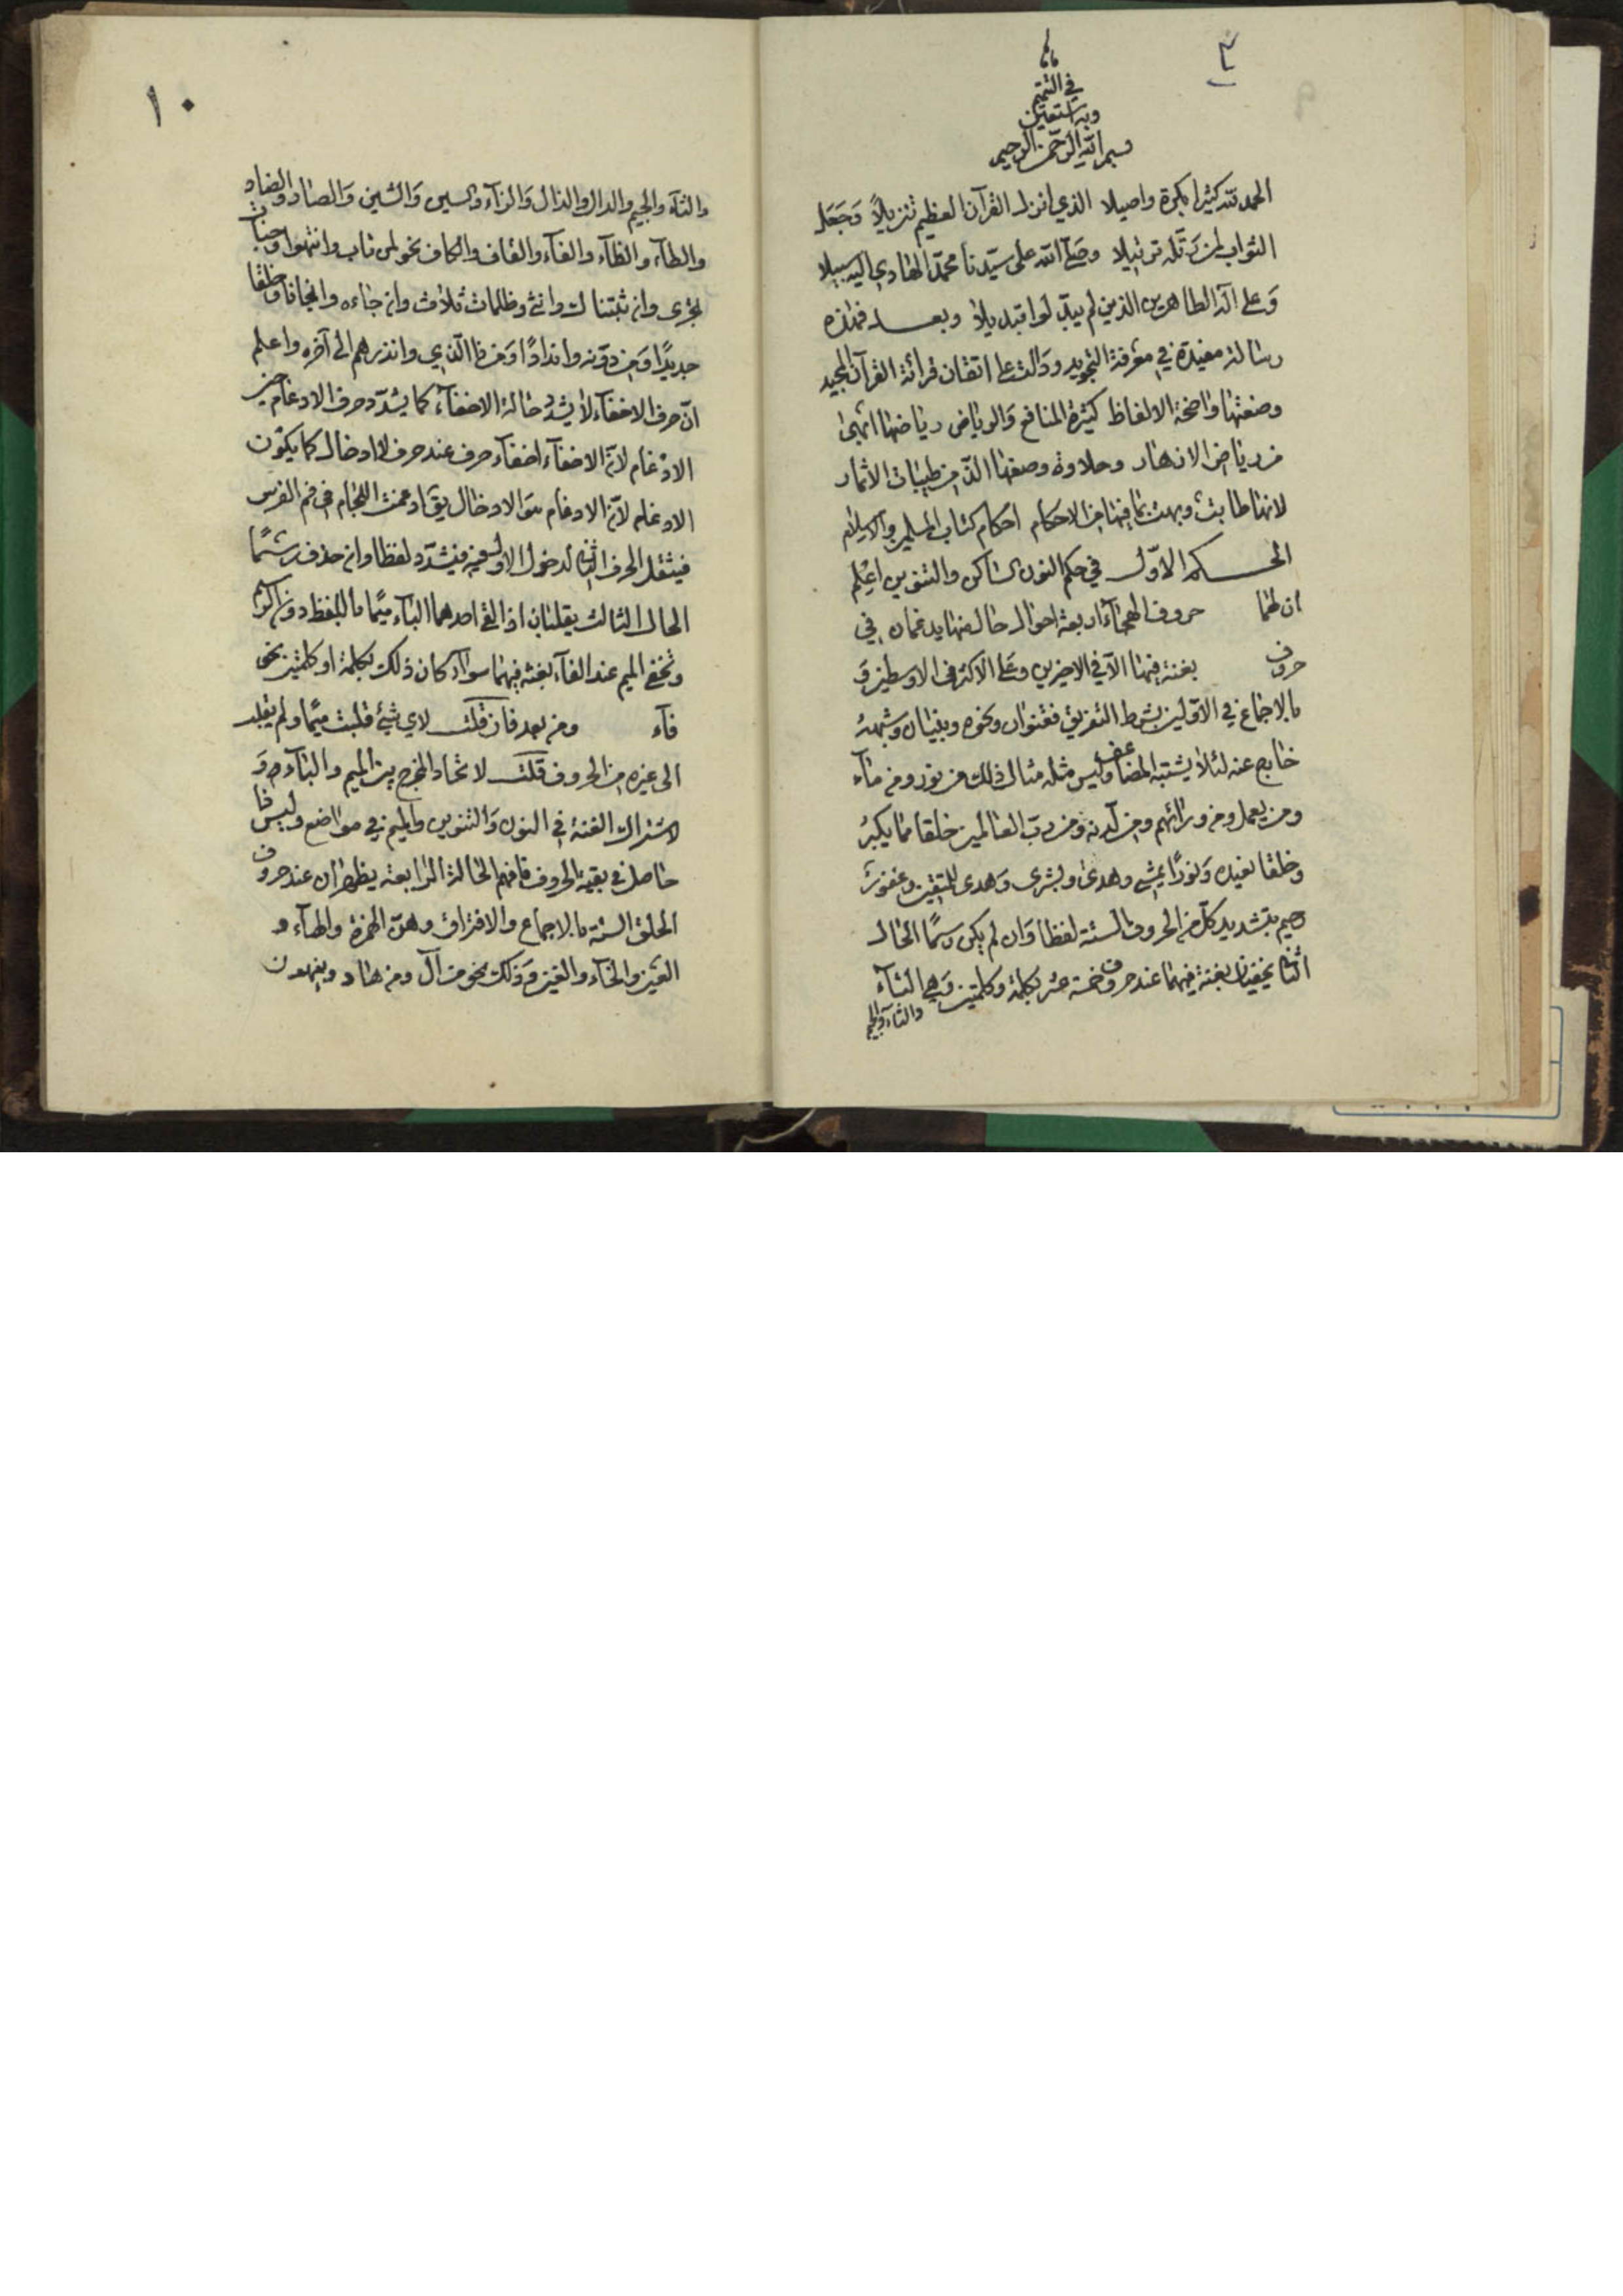 ٣
في التتميم
وبه نستعين
بسم الله الرحمن الرحيم
الحمد لله كثيرا بكرة واصيلا الذي انزل القرآن العظيم تنزيلاً وَجَعَل
الثواب لمن رَتّله ترتيلا وصَلّى الله على سيّدنا محمّد الهادي اليه سبيلا
وَعلى آله الطاهرين الذين لم يبدّلوا تبديلاً وبعد فهذه
رسالة مفيدة في معرفة التجويد ودالة على اتقان قرائة القرآن المجيد
وصنعتها واضحة الالفاظ كثيرة المنافع وَالرياض رياضها ابهى
من رياض الانهار وحلاوة وصفها الذّ من طيبات الاثمار
لانها طابت وبهت بما فيها من الاحكام احكام كتاب المسلمين والاسلام
الحكم الاوّل في حكم النون الساكن والتنوين اعلم
ان لهما حروف الهجاء اربعة احوال حال منها يدغمان في
حروف بغنة فيها الا في الاخيرين وعلى الاكثر في الاوسطين وَ
بالاجماع في الاوّلين بشرط التفريق فقنوان ونحوه وبنيان وشبهه
خارج عنه لئلا يشتبه المضاعف وليس مثله مثال ذلك من نور ومن ماء
ومن يعمل ومن ورائهم ومن لدنه ومن ربّ العالمين خلقا مما يكبرُ
وخلقا نعيده وَنورًا يمشي وهدى وبشرى وَهدى للمتقين وغفورٌ
رحيم بتشديد كلّ من الحروف الستة لفظا وَان لم يكن رسمًا الحال
الثاني يخفيان بغنة فيهما عند حروف خمسة عشر بكلمة وكلمتين وَهي التاء
والثاء والجيم
١٠
والثاء والجيم والدال والذال وَالزاء والسين وَالشين وَالصاد والضاد
والطاء والظاء والفاء والقاف والكاف نحو لمن تاب وانتهوا وجنات
تجري وان ثبتناك وانثى وظلمات ثلاث وان جاءه وانجانا وخلقا
جديدًا وَمن دونه واندادًا وَمن ذا الّذي وانذرهم الى آخره واعلم
انّ حرف الاخفاء لا يشدّد حالة الاخفاء كما يشدّد حرف الادغام حين
الادغام لانّ الاخفاء اخفاء حرف عند حرف لا ادخال كما يكون
الادغام لانّ الادغام هو الادخال يقال ادغمت اللجام في فم الفرس
فيثقل الحرف الثاني لدخول الاول فيه فيشدّد لفظا وان حذف رسمًا
الحال الثالث يقلبان اذا لقي احدهما الباء ميمًا باللفظ دون الرسم
وتخفي الميم عند الفاء بغنة فيهما سواء كان ذلك بكلمة او كلمتين نحو
فآء ومن بعد فان قلت لاي شيء قلبت ميمًا ولم يقلب
الى غيره من الحروف قلت لاتحاد المخرج بين الميم والباء وَ
لاشتراك الغنة في النون والتنوين والميم في مواضع وليس ذا
حاصل في بقية الحروف فافهم الحالة الرابعة يظهران عند حروف
الحلق الستة بالاجماع والافتراق وهنّ الهمزة والهاء و
العين والخاء والغين وَذلك نحو من آل ومن هاد وينهون